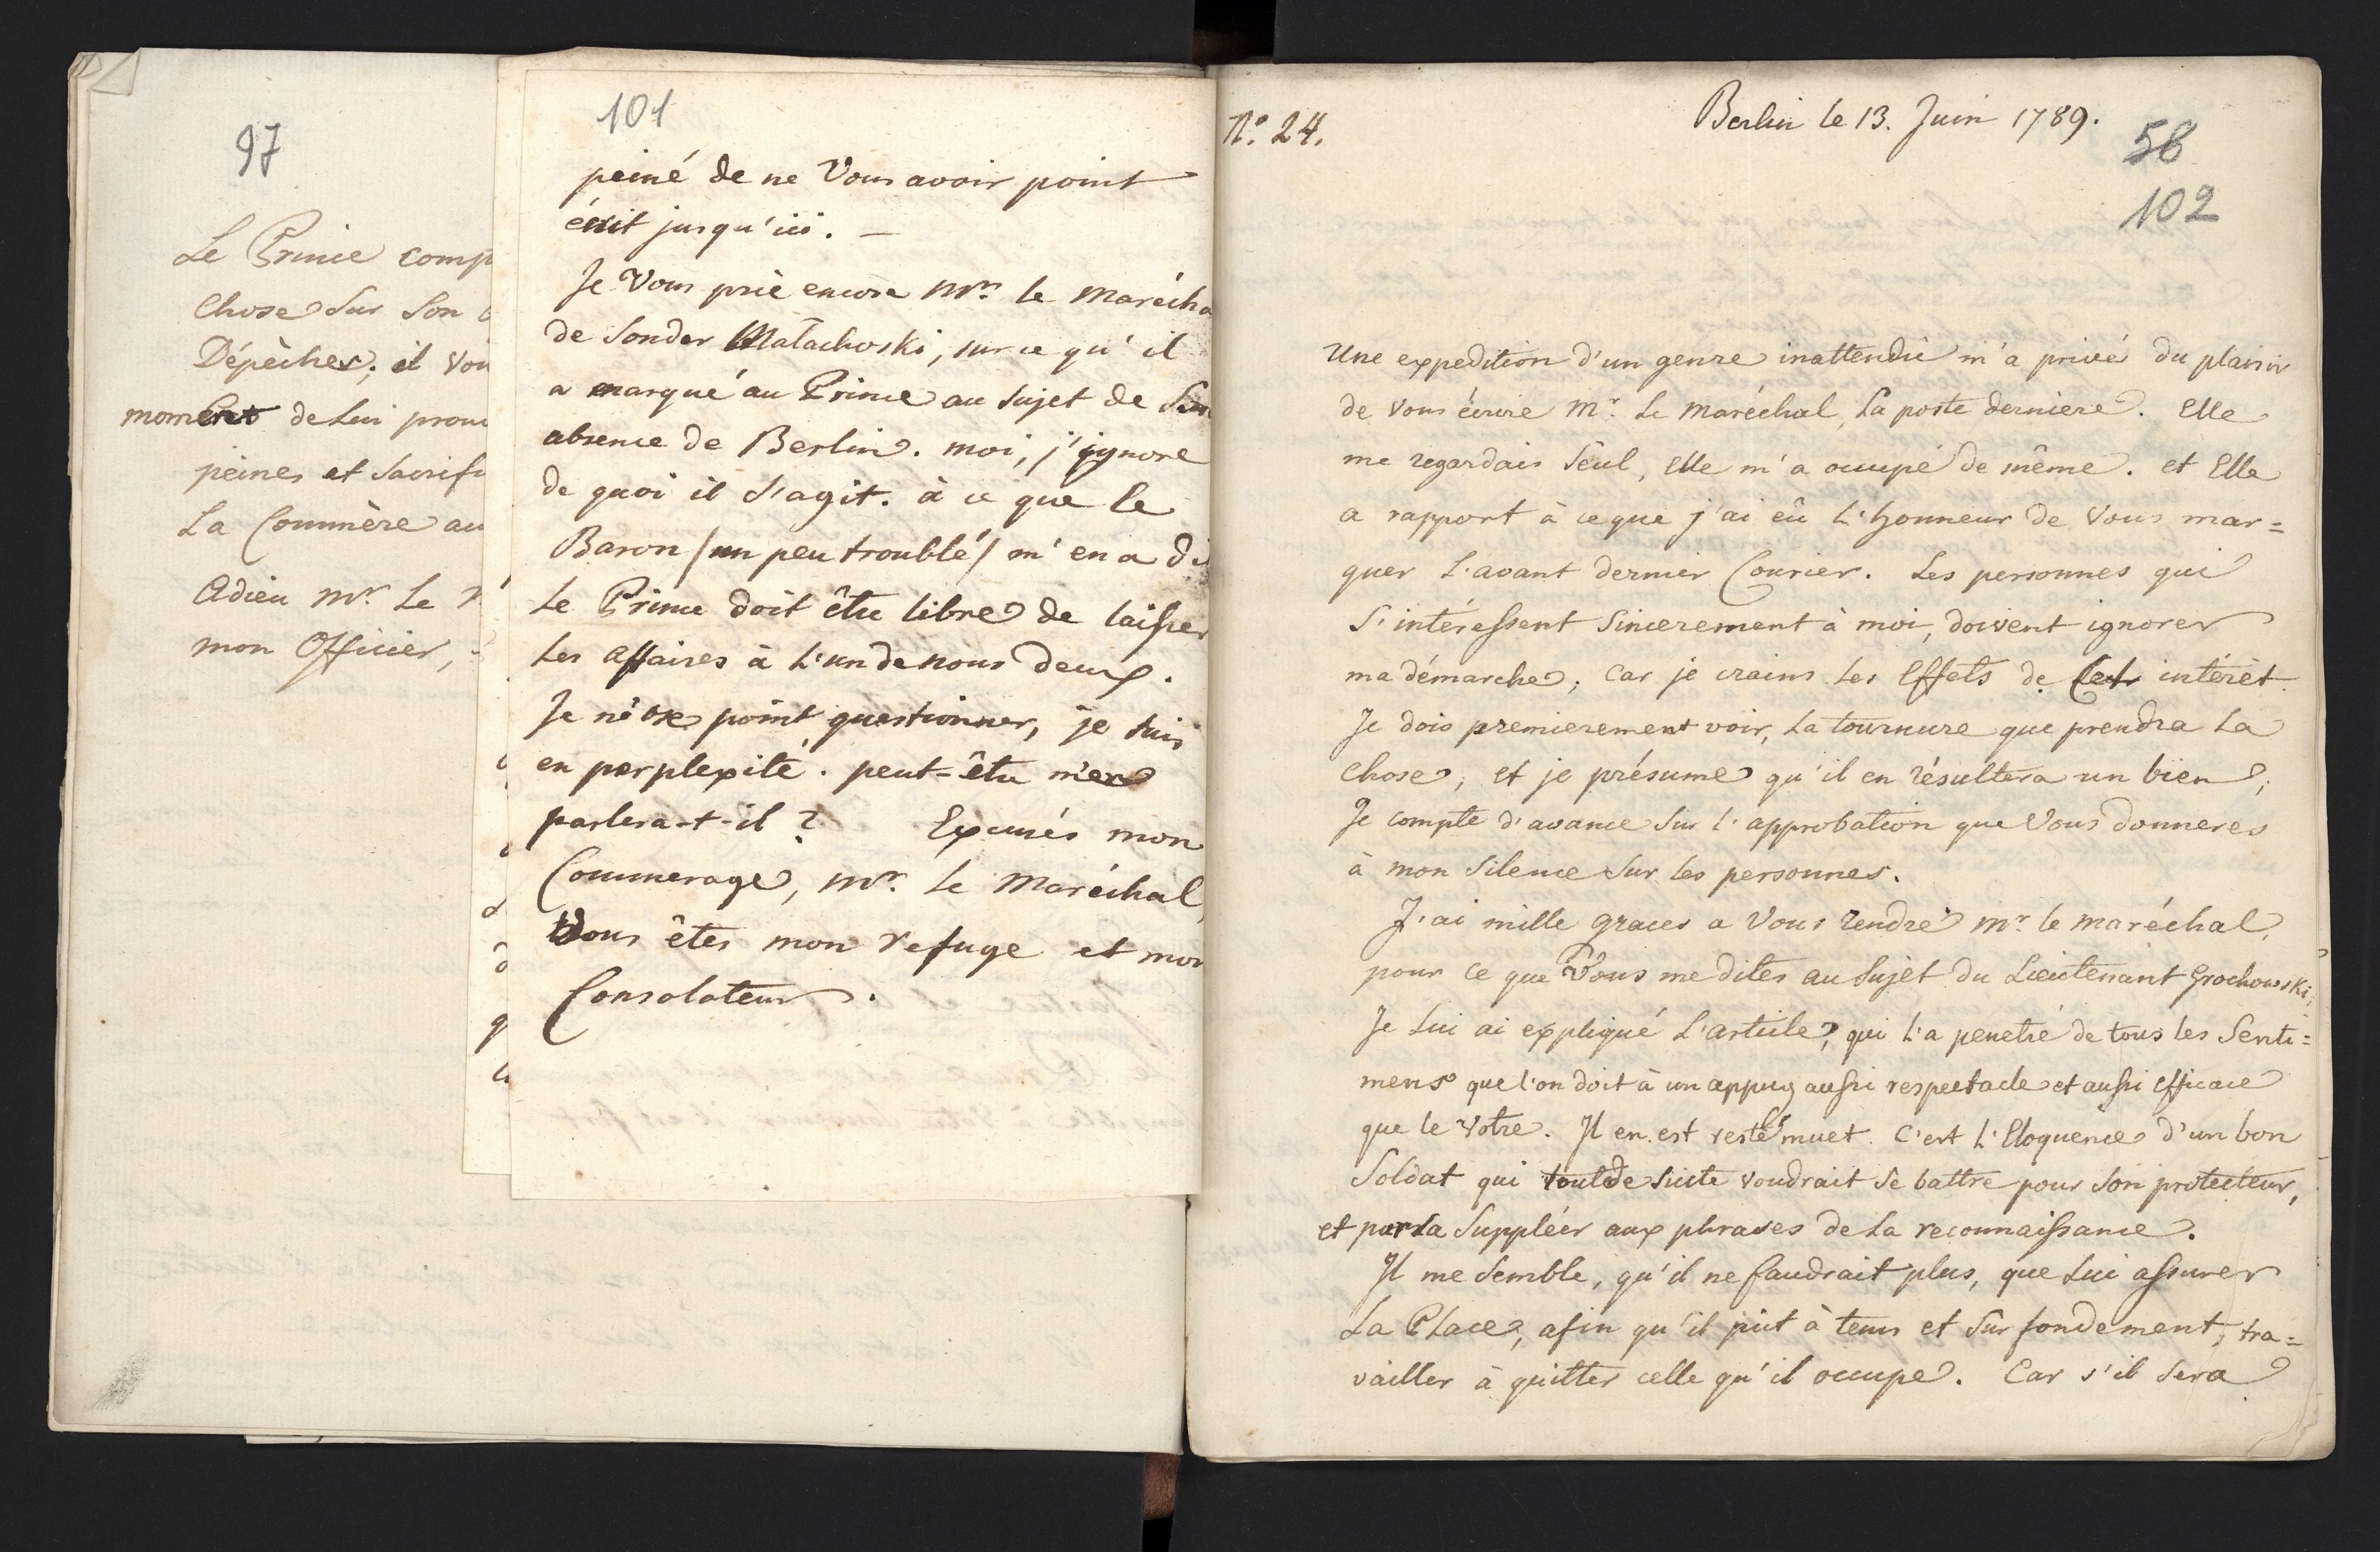 97
Le Prince comp
Chose sur son
Dépêches; il vou
moment de lui prou
peines et sacrifi
La Commère au
Adieu Mr. Le
mon Officier,
101
peiné de ne Vous avoir point
écrit jusqu'ici. —
Je Vous prie encore Mr. le Marécha
de sonder Małachoski, sur ce qu'il
a marqué au Prince au sujet de son
absence de Berlin. moi, j'ignore
de quoi il s'agit. à ce que le
Baron /un peu troublé/ m'en a di
Le Prince doit être libre de laisser
Les affaires à L'un de nous deux.
Je n'ose point questionner, je suis
en perplexité. peut-être m'en
parlera-t-il? Excusés mon
Commerage, Mr. Le Maréchal,
Vous êtes mon refuge et mon
Consolateur.
No. 24.
Berlin le 13. Juin 1789.
58
102
Une expedition d'un genre inattendu m'a privé du plaisir
de vous écrire Mr. Le Maréchal, La poste derniere. Elle
me regardais seul, Elle m'a occupé de même. et Elle
a rapport à ce que j'ai eû L'honneur de Vous mar=
quer L'avant dernier Courier. Les personnes qui
s'intéressent sincerement à moi, doivent ignorer
ma démarche; car je crains les Effets de Cet intérêt.
Je dois premierement voir, La tournure que prendra La
Chose; et je présume qu'il en résultera un bien;
Je compte d'avance sur l'approbation que Vous donneres
à mon silence sur les personnes.
J'ai mille graces a Vous rendre Mr. le Maréchal,
pour ce que Vous me dites au sujet du Lieutenant Grochowski,
Je Lui ai expliqué L'article, qui L'a penetré de tous les Senti=
mens que l'on doit à un appuy aussi respectacle et aussi efficace
que le Votre. Il en est resté muet. C'est L'Eloquence d'un bon
Soldat qui tout de suite voudrait se battre pour son protecteur,
et par La Suppléer aux phrases de La reconnaissance.
Il me semble, qu'il ne faudrait plus, que Lui assurer
La Place, afin qu'il pût à tems et sur fondement, tra=
vailler à quitter celle qu'il occupe. Car s'il sera